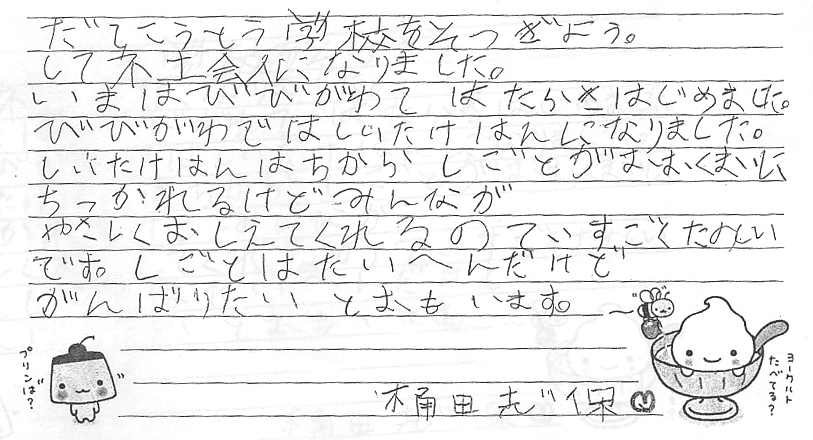 だてこうとう学校をそつぎよう。
して社会人になりました。
いまはびびがわてはたらきはじめました。
びびがわではしいたけはんになりました。
しいたけはんはちからしごとがおおくまいに
ちつかれるけどみんなが
やさしくおしえてくれるのていすごくたのしい
です。しごとはたいへんだけど
がんばりたいとおもいます。
プリンは?
ヨーグルト
たべてる?
桶田志保